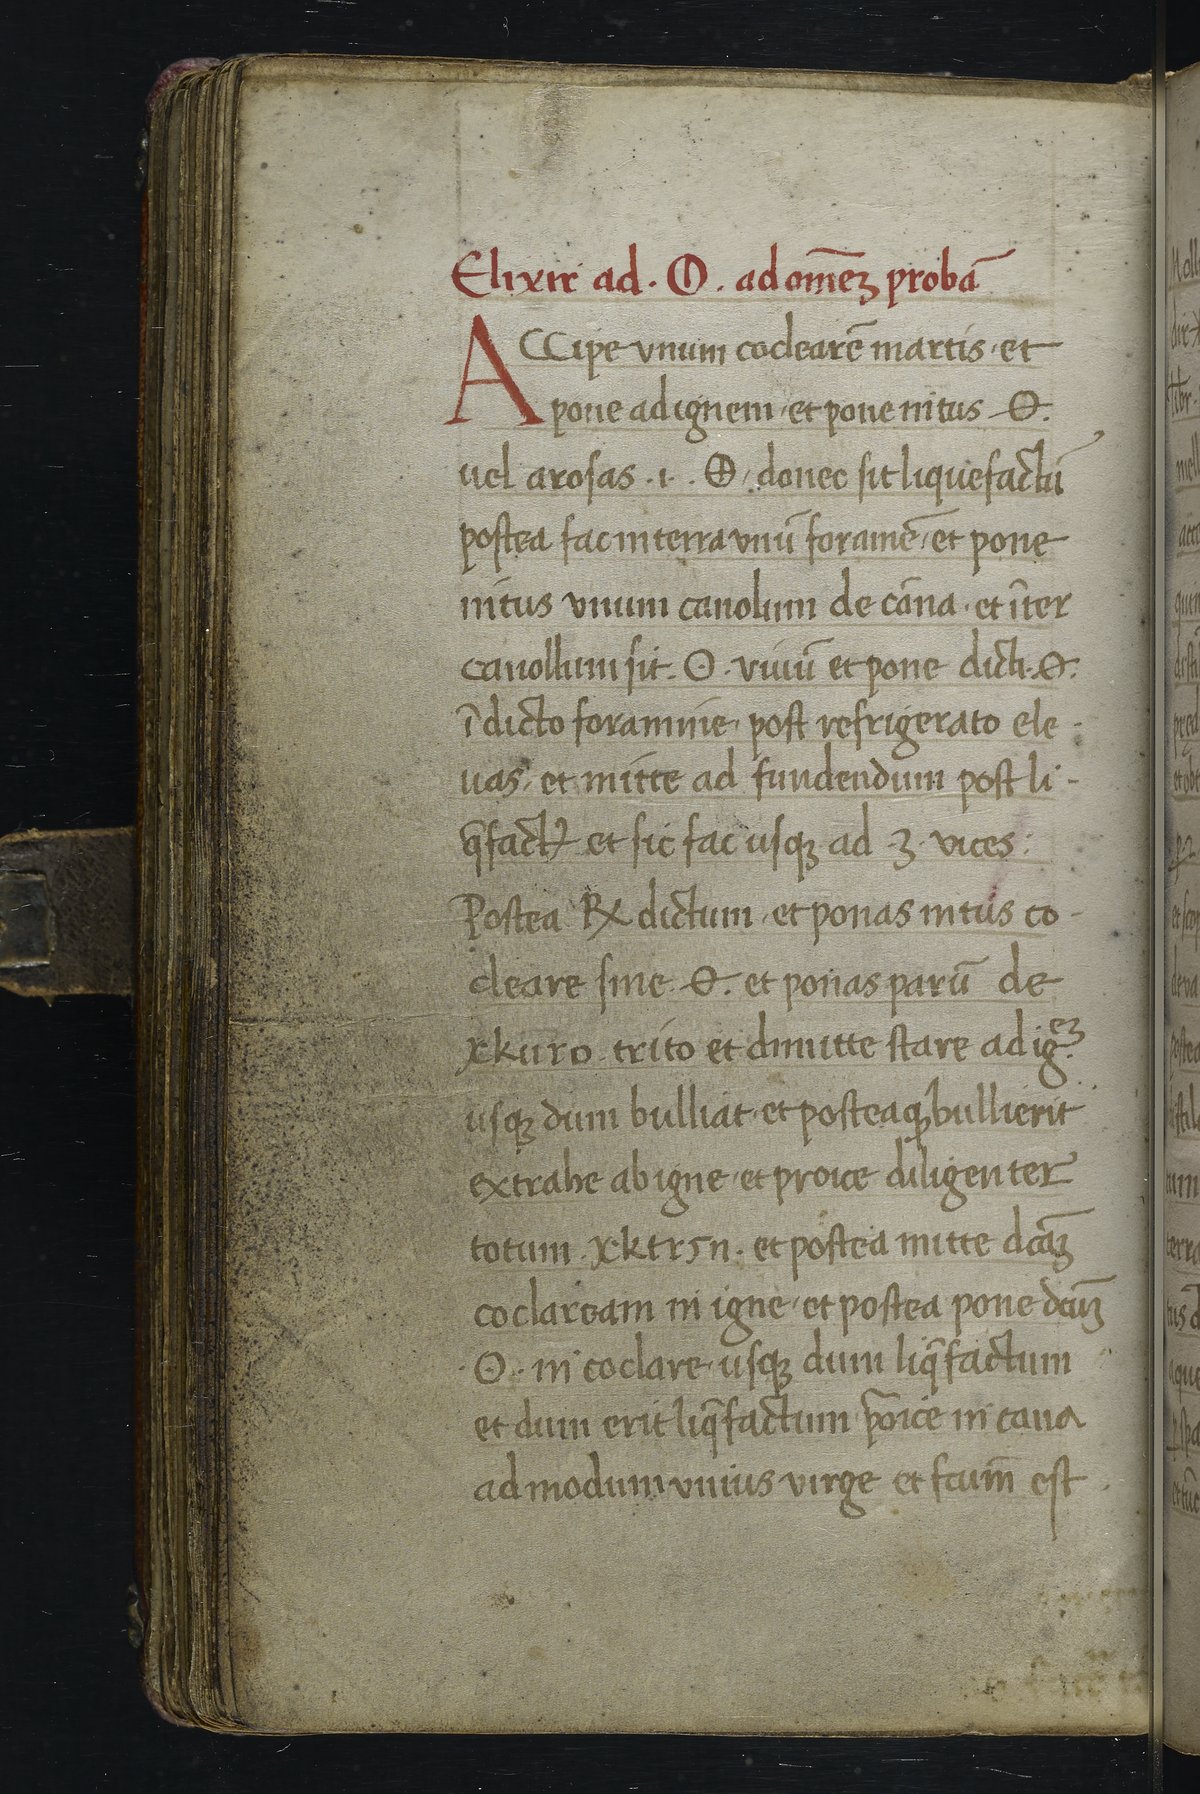 Elixir ad · ⦶ · ad om̄eʒ probā
ACCipe vnum coclearē martis · et
pone ad ignem · et pone intus ⊖.
uel arosas · i · ⊕ · donec sit liquefactū
postea fac in terra vnū foramē · et pone
intus vnum canolum de cāna · et īter
canollum sit · ʘ · viuū et pone dicti · ⊖.
ī dicto foramine · post refrigerato ele -
uas · et mitte ad fundendum post li -
q̄fact et sic fac usqʒ ad · 3 · vices :
Postea ℞ dictum · et ponas intus co -
cleare sine ⊖. et ponas parū de
xkuro · trito et dimitte stare ad ig᷎eʒ.
usqʒ dum bulliat · et posteaqʒ bullierit
extrahe ab igne · et proice diligenter
totum · xktrsn · et postea mitte dcāʒ
coclaream in igne · et postea pone dcūʒ
· ʘ · in coclare · usqʒ dum liq̄factum
et dum erit liq̄factum p̄oice in caua
ad modum vnius virge et fcum̄ est